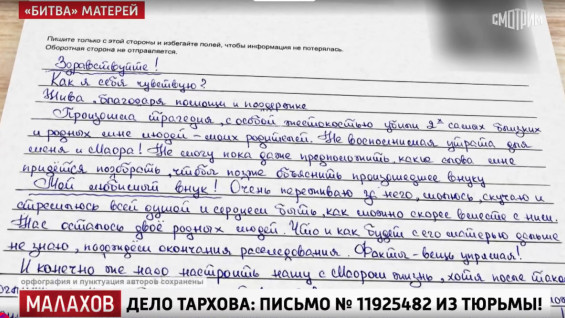 «БИТВА» МАТЕРЕЙ
СМОТРИМ
Пишите только с этой стороны и избегайте полей, чтобы информация не потерялась.
Оборотная сторона не отправляется.
Здравствуйте!
Как я себя чувствую?
Жива, благодаря помощи и поддержке
Произошла трагедия, с особой жестокостью убили 2х самых близких
и родных мне людей – моих родителей. Не восполнимая утрата для
меня и Маора! Не могу пока даже предположить, какие слова мне
придётся подобрать, чтобы позже объяснить произошедшее внуку
Мой любимый внук! Очень переживаю за него, молюсь, скучаю и
стремлюсь всей душой и сердцем быть, как можно скорее вместе с ним.
Нас осталось двое родных людей. Что и как будет с его матерью дальше
не знаю, подождём окончания расследования. Факты – вещь упрямая!
И конечно же надо настроить нашу с Маором жизнь, хотя после такой
орфография и пунктуация авторов сохранены
МАЛАХОВ ДЕЛО ТАРХОВА: ПИСЬМО № 11925482 ИЗ ТЮРЬМЫ!